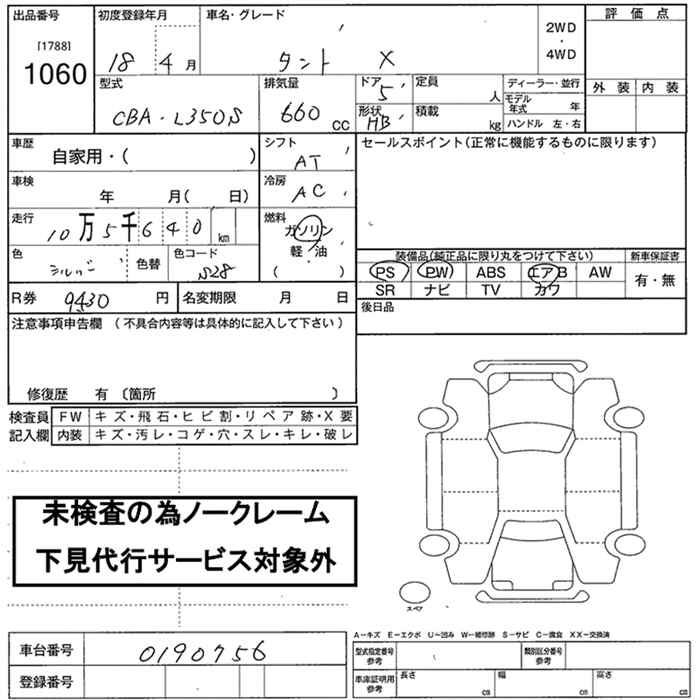 出品番号
[1788]
1060
初度登録年月
18 4 月
車名・グレード
タント X
2WD
・
4WD
評価点
外装 内装
型式
CBA-L350S
排気量
660 CC
ドア
5
形状
HB
定員
人
積載
kg
ディーラー・並行
モデル年式 年
ハンドル 左・右
車歴
自家用・( )
シフト
AT
セールスポイント(正常に機能するものに限ります)
車検
年 月( 日)
冷房
AC
走行
10万5千640 km
燃料
ガソリン
軽・油
( )
色
シルバー
色替
色コード
S28
装備品(純正品に限り丸をつけて下さい)
PS PW ABS エアB AW
SR ナビ TV カワ
新車保証書
有・無
R券 9430 円
名変期限 月 日
後日品
注意事項申告欄 (不具合内容等は具体的に記入して下さい)
修復歴 有 〔箇所 〕
検査員記入欄
FW キズ・飛石・ヒビ割・リペア跡・X要
内装 キズ・汚レ・コゲ・穴・スレ・キレ・破レ
未検査の為ノークレーム
下見代行サービス対象外
スペア
A−キズ E−エクボ U−凹み W−補修跡 S−サビ C−腐食 XX−交換済
車台番号 0190756
登録番号
型式指定番号参考
類別区分番号参考
車庫証明用参考
長さ cm 幅 cm 高さ cm